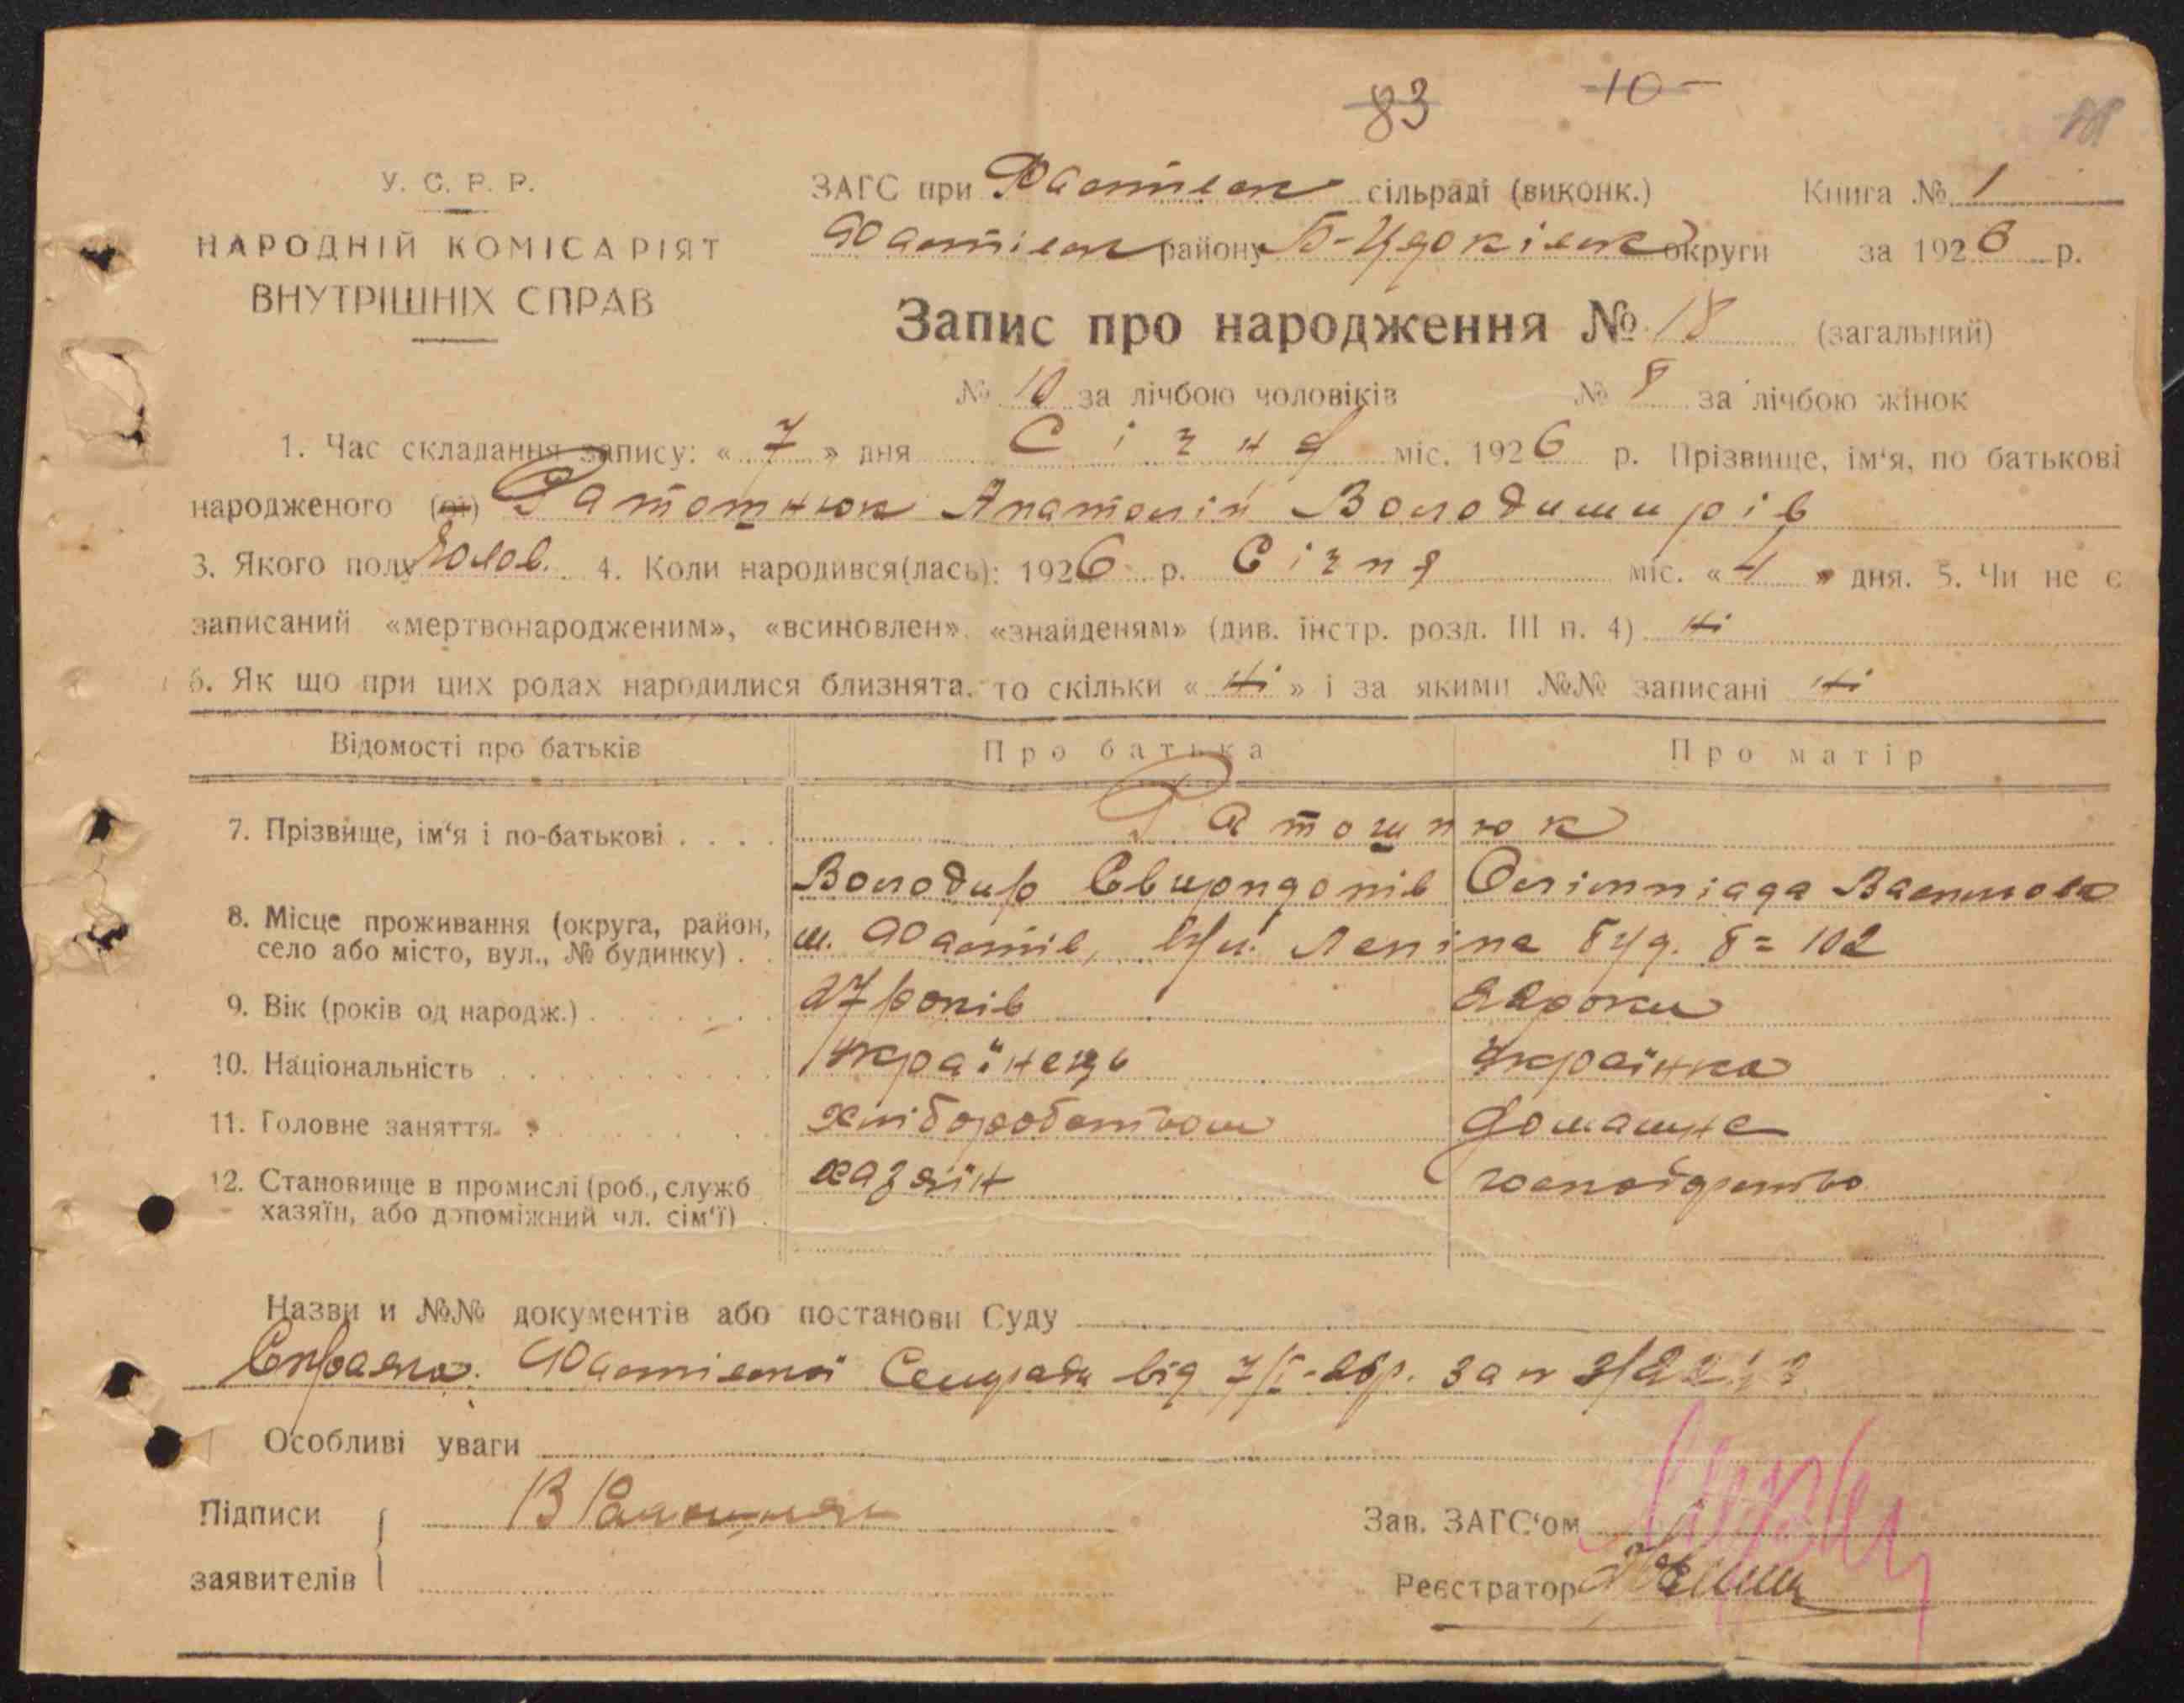 83 10
У. С. Р. Р.
НАРОДНІЙ КОМІСАРІЯТ
ВНУТРІШНІХ СПРАВ
ЗАГС при Фастівськ сільраді (виконк.) Книга № 1
Фастівськ району Б-Церківськ округи за 1926 р.
Запис про народження № 18 (загальний)
№ 10 за лічбою чоловіків № 8 за лічбою жінок
1. Час складання запису: « 7 » дня Січня міс. 1926 р. Прізвище, ім‘я, по батькові
народженого (ої) Ратошнюк Анатолій Володимирів
3. Якого полу Чолов. 4. Коли народився(лась): 1926 р. Січня міс. « 4 » дня. 5. Чи не є
записаний «мертвонародженим», «всиновлен», «знайденям» (див. інстр. розд. III п. 4) ні
6. Як що при цих родах народилися близнята, то скільки « ні » і за якими №№ записані ні
Відомості про батьків Про батька Про матір
7. Прізвище, ім‘я і по-батькові . . . . Ратошнюк
Володир Олімпіада Василова
8. Місце проживання (округа, район, село або місто, вул., № будинку) . . м. Фастів, вул. Леніна буд. 102
9. Вік (років од народж.) . . . . . . . 27 років 22 роки
10. Національність . . . . . . . . . . . Українець Українка
11. Головне заняття . . . . . . . . хліборобством домашнє
12. Становище в промислі (роб., служб хазяїн, або допоміжний чл. сім‘ї) . хазяїн господарство
Назви и №№ документів або постанови Суду
Справка Фастівської Сельради від 7/I-26р. за н
Особливі уваги
Підписи заявителів В Ратошнюк
Зав. ЗАГС‘ом
Реєстратор